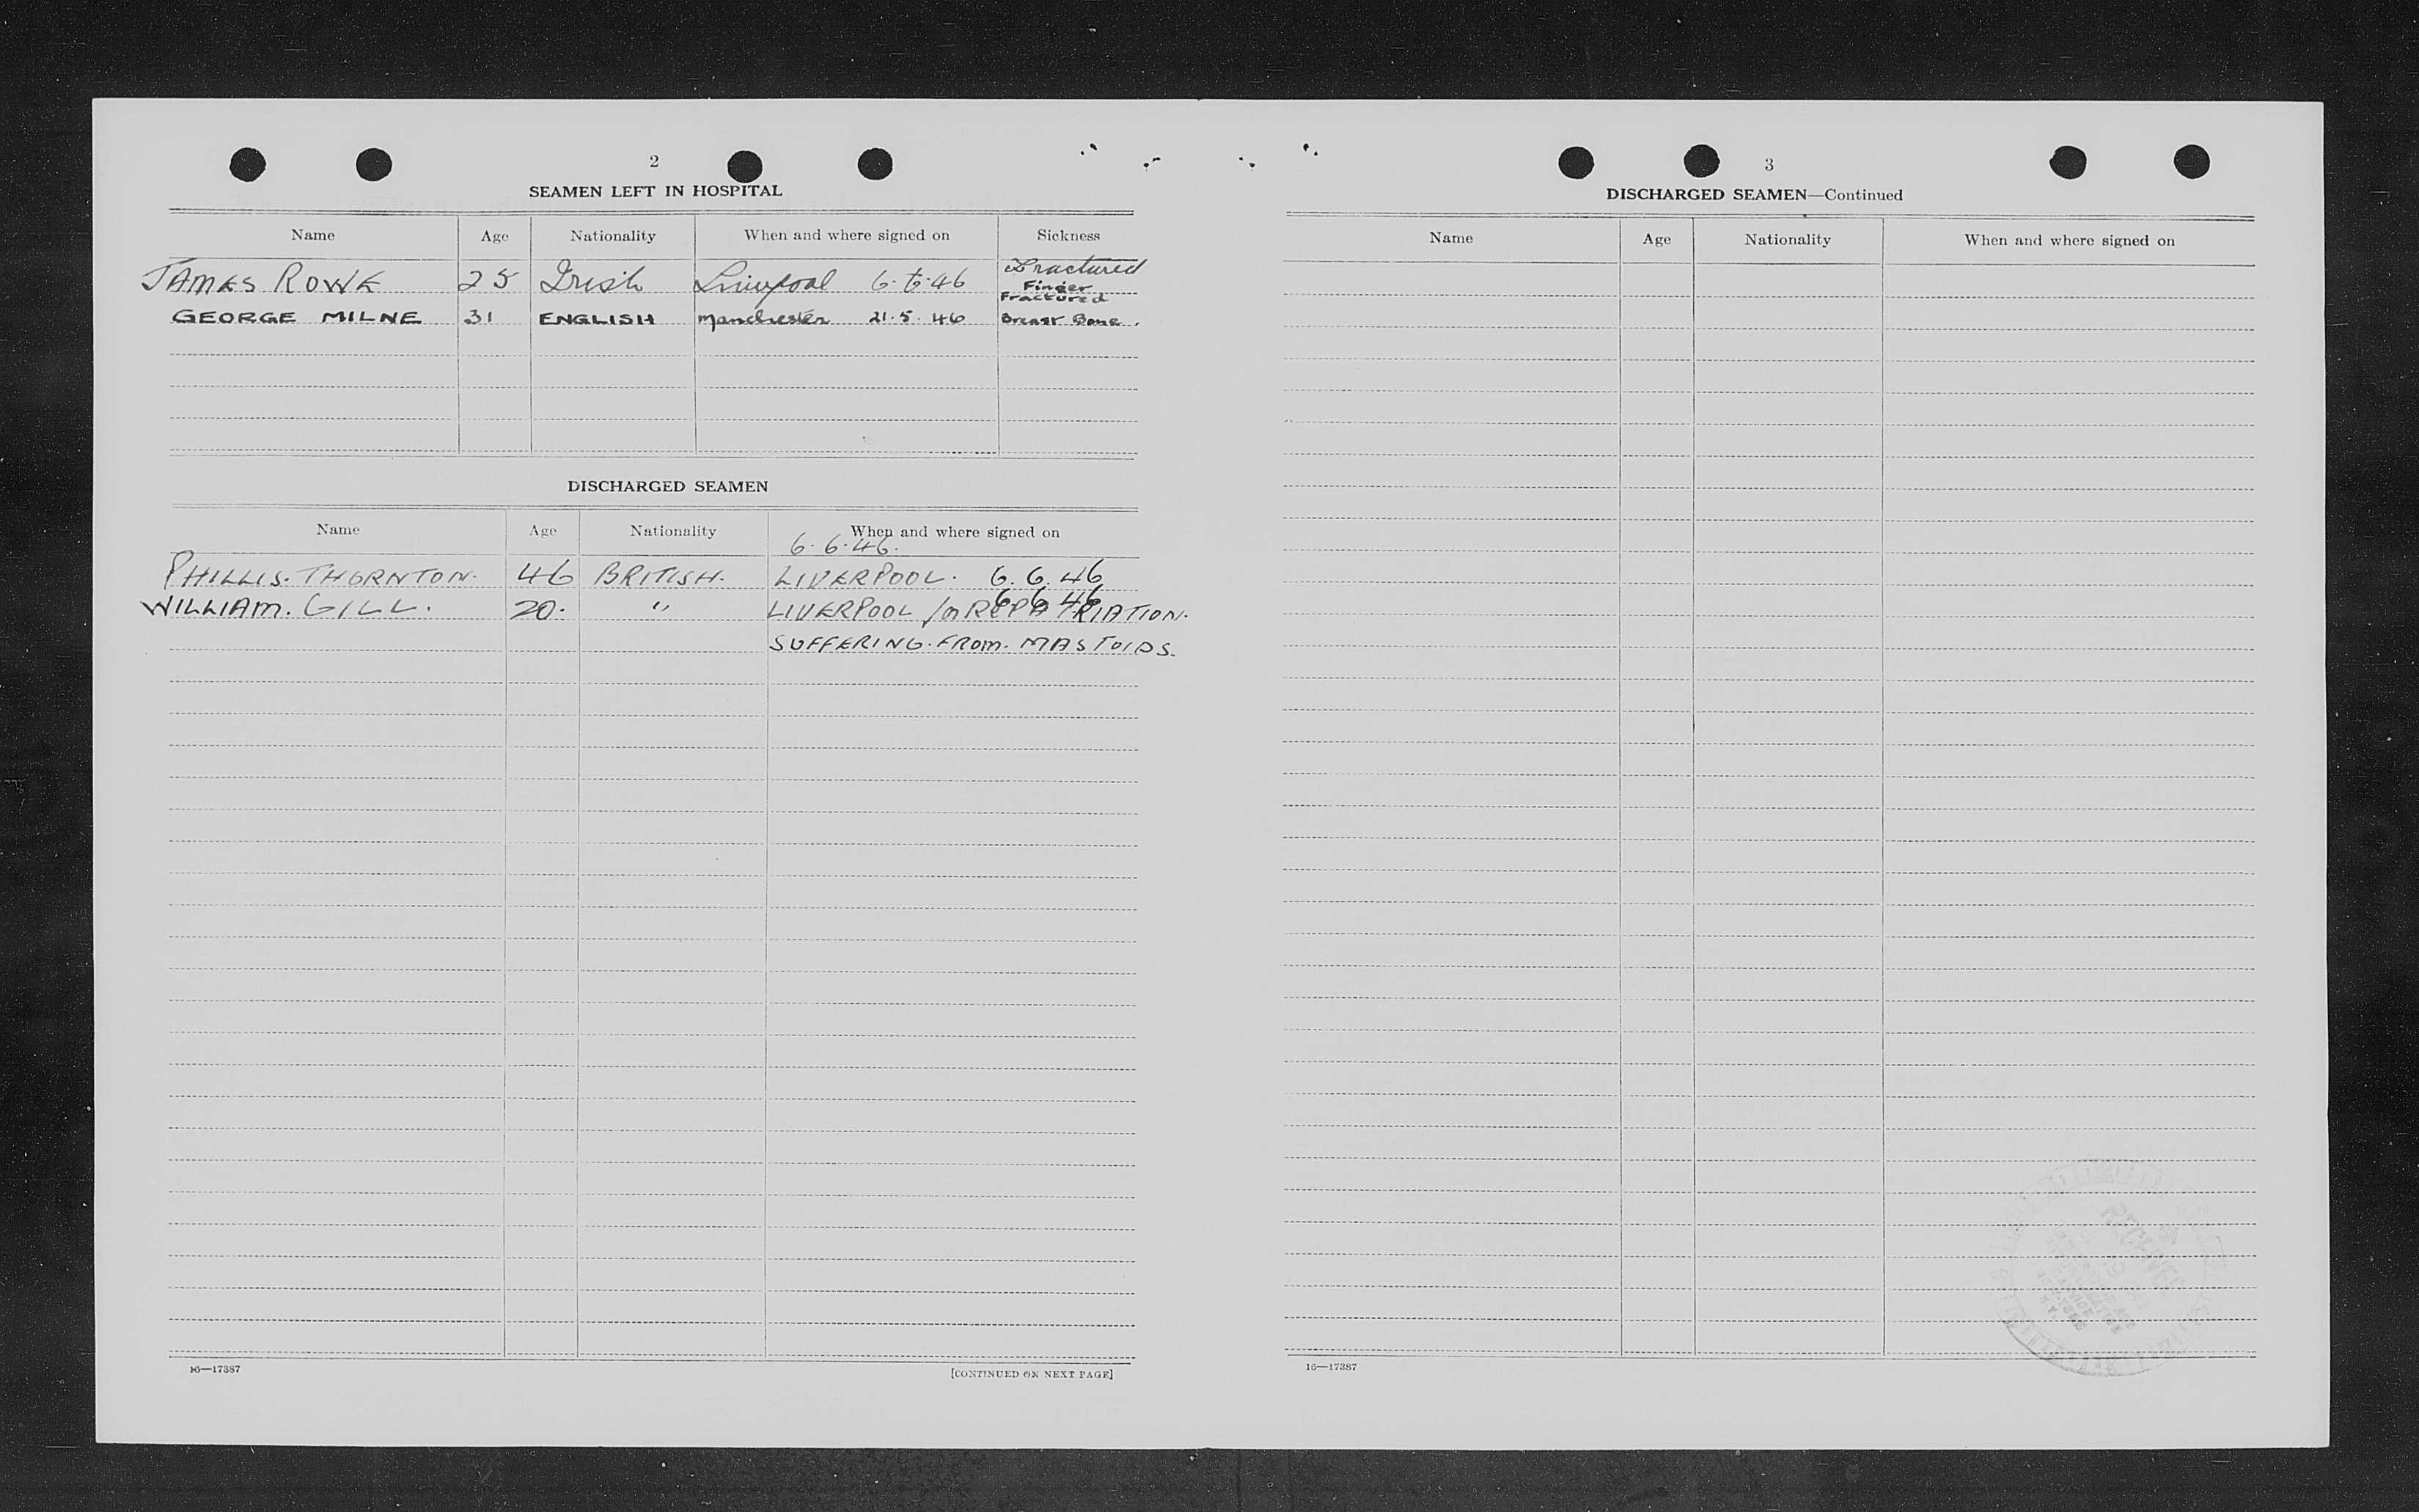 2
SEAMEN LEFT IN HOSPITAL
Name Age Nationality When and where signed on Sickness
JAMES ROWE 25 Irish Liverpool 6.6.46 Fractured Finger
GEORGE MILNE 31 ENGLISH Manchester 21.5.46 Fractured Breast Bone.
DISCHARGED SEAMEN
Name Age Nationality When and where signed on
6.6.46.
PHILLIS. THORNTON. 46 BRITISH. LIVERPOOL. 6.6.46
WILLIAM. GILL. 20. " LIVERPOOL 6.6.46 for REPATRIATION.
SUFFERING. FROM. MASTOIDS.
16—17387
[CONTINUED ON NEXT PAGE]
3
DISCHARGED SEAMEN—Continued
Name Age Nationality When and where signed on
16—17387